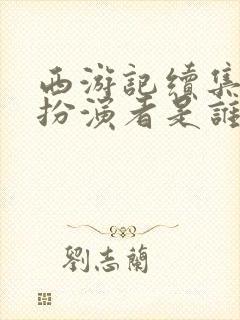 西游記續集
扮演者是誰
劉志蘭